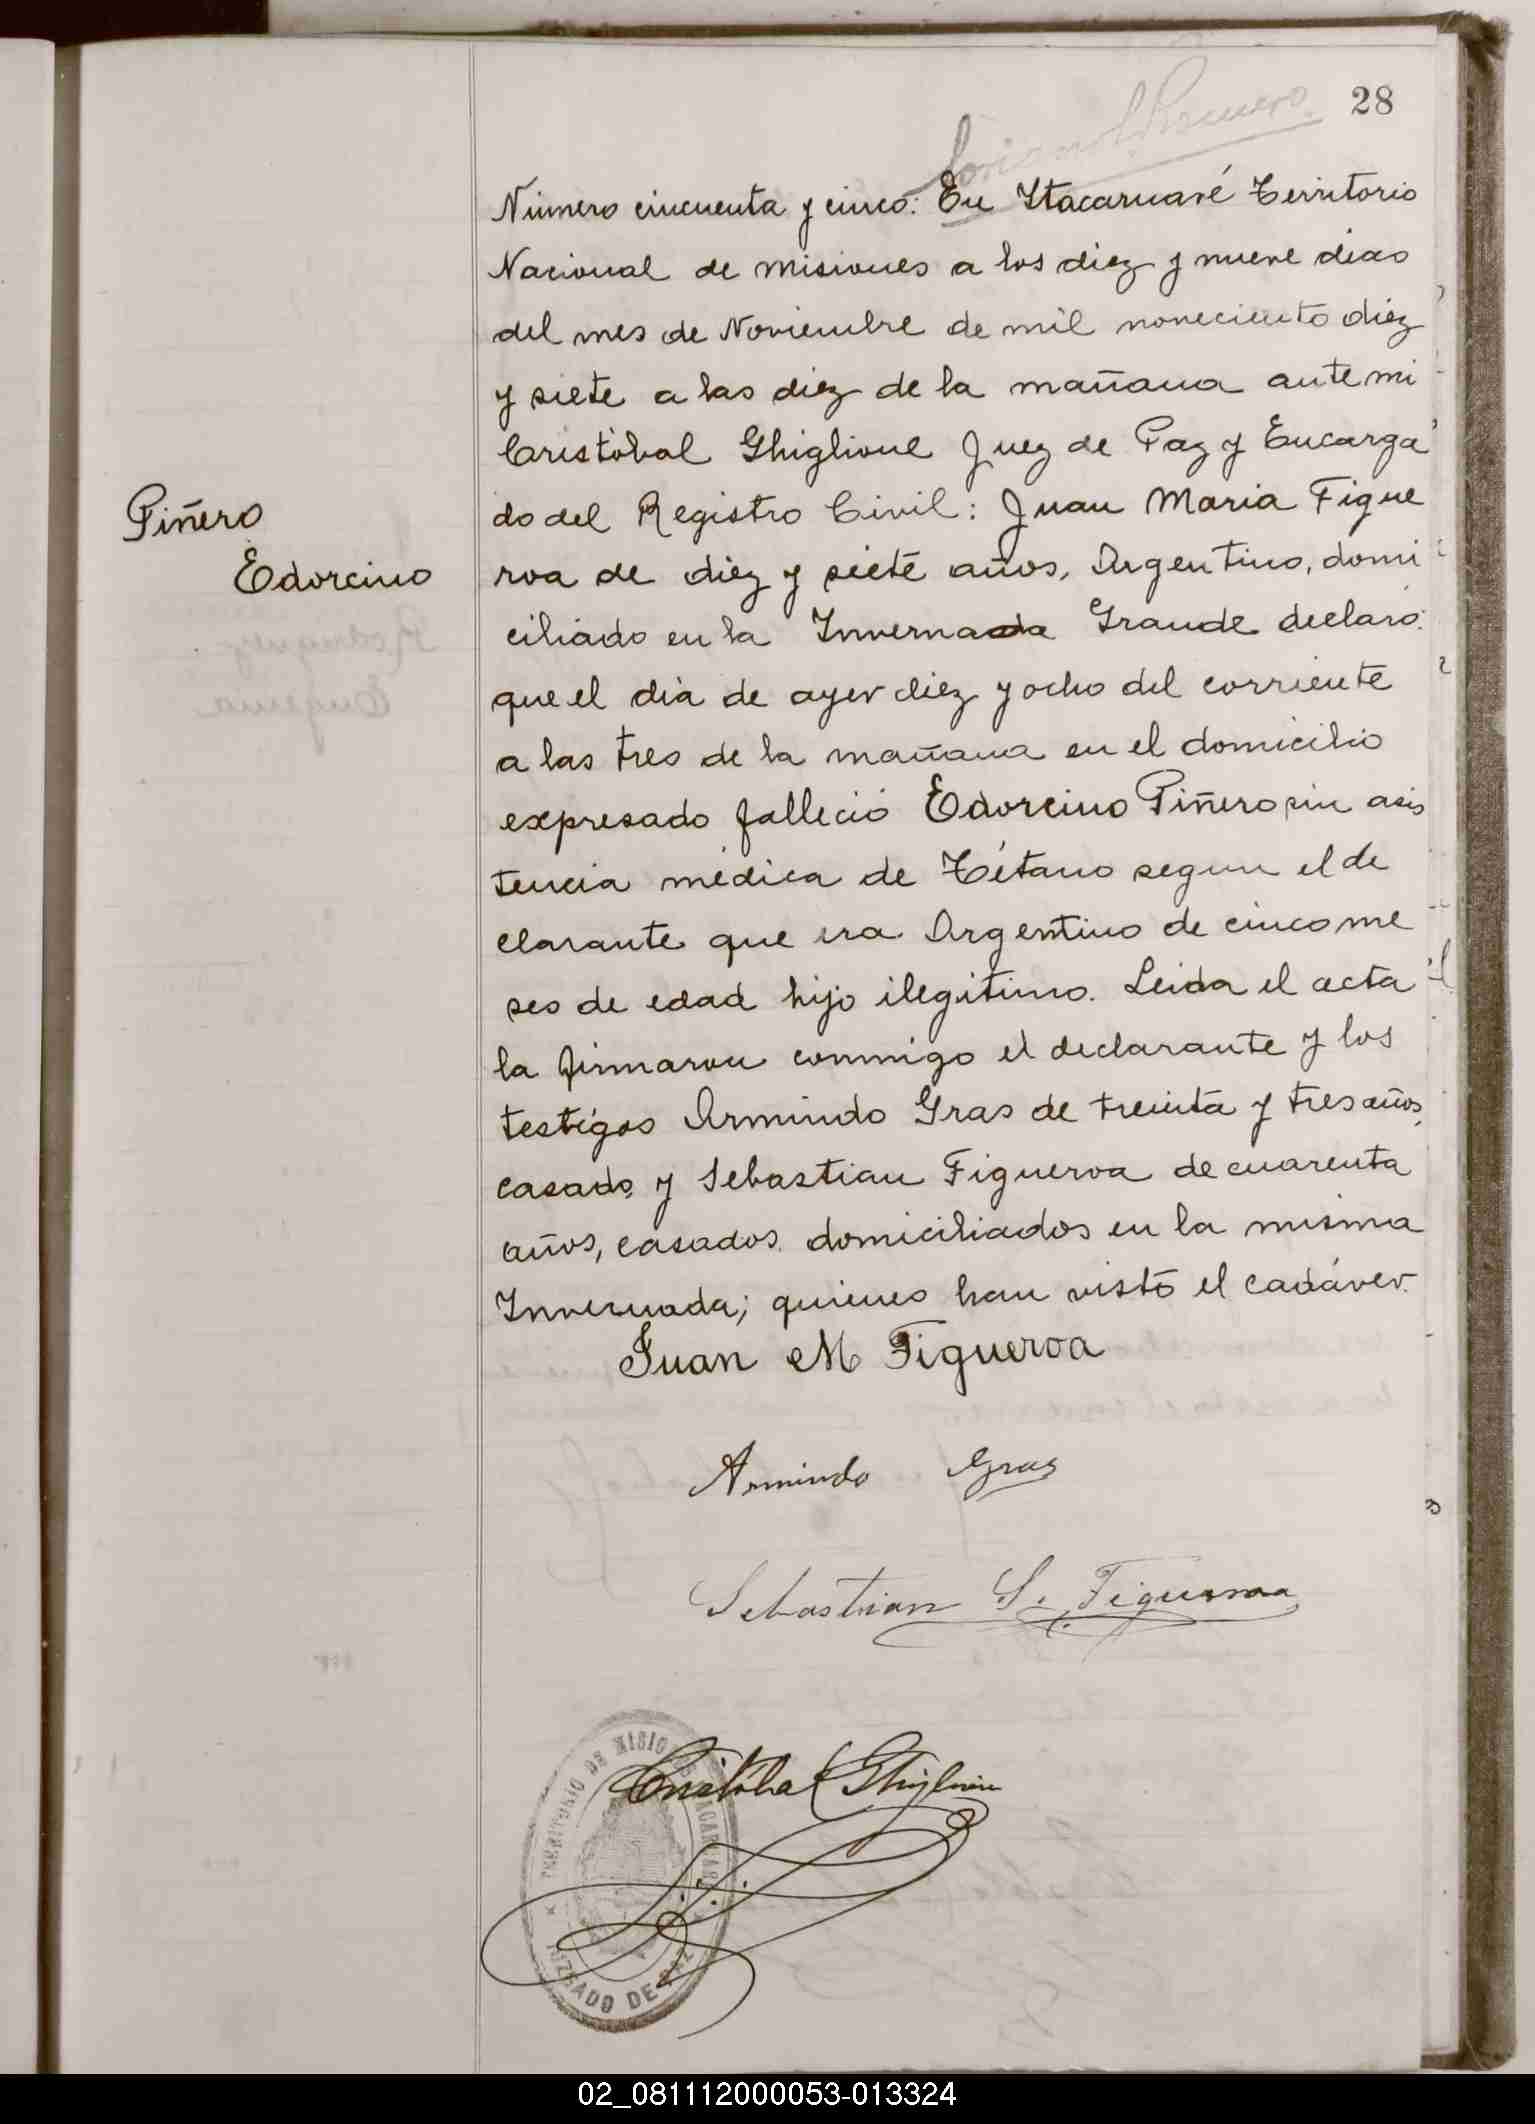 28
Número cincuenta y cinco: En Ytacaruaré Territorio
Nacional de Misiones a los diez y nueve dias
del mes de Noviembre de mil noveciento diez
y siete a las diez de la mañana ante mi
Cristóbal Ghiglione Juez de Paz y Encarga
do del Registro Civil: Juan Maria Figue
roa de diez y siete años, Argentino, domi
ciliado en la Invernada Grande declaró:
que el dia de ayer diez y ocho del corriente
a las tres de la mañana en el domicilio
expresado falleció Edorcino Piñero sin asis
tencia médica de Tétano segun el de
clarante que era Argentino de cinco me
ses de edad hijo ilegitimo. Leida el acta
la firmaron conmigo el declarante y los
testigos Armindo Gras de treinta y tres años,
casado y Sebastian Figueroa de cuarenta
años, casados domiciliados en la misma
Invernada; quienes han visto el cadáver.
Piñero
Edorcino
Juan M Figueroa
Armindo Gras
Sebastian S. Figueroa
Cristóbal Ghiglione
TERRITORIO DE MISIONES ITACARUARE
JUZGADO DE PAZ
02_081112000053-013324